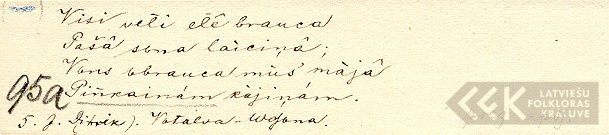 Visi veči elē brauca
Pašā sona laiciņā;
Vens obrauca mūs' mājā
95a Piņkainām kājiņām.
5. J. (Dihrik). Kotalva - Wojona.
LATVIEŠU
FOLKLORAS
KRĀTUVE